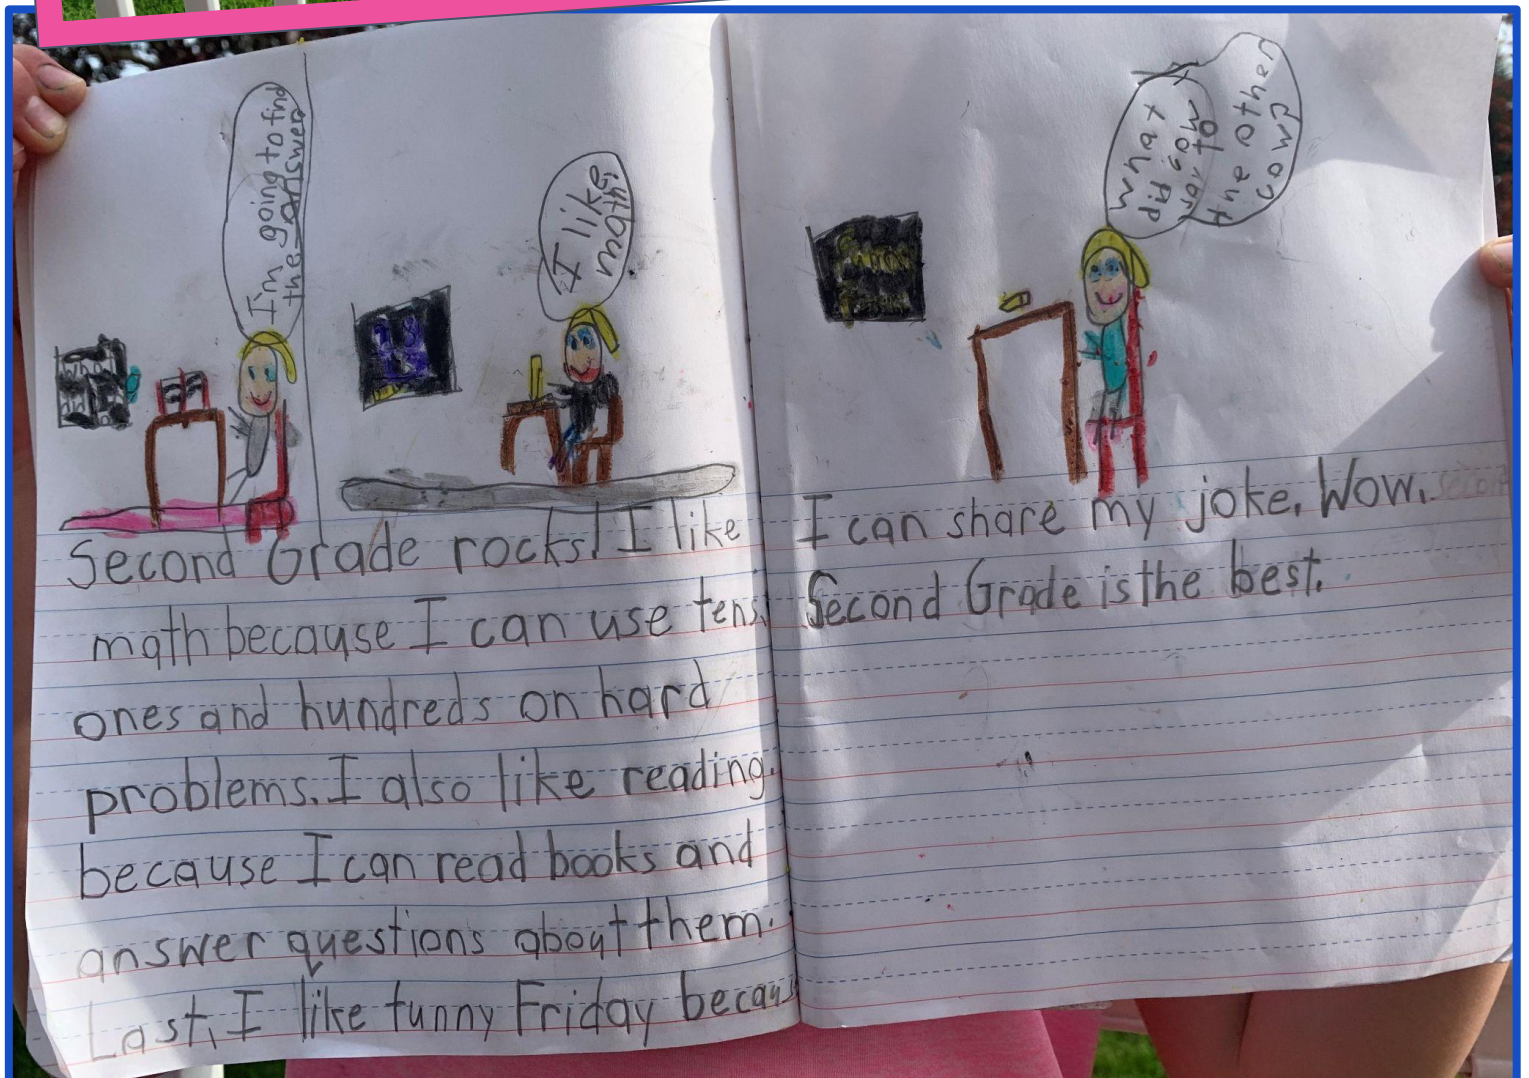 I'm going to find
the answer
I like
what
did
the other
cow
Who
Second Grade rocks! I like
math because I can use tens,
ones and hundreds on hard
problems. I also like reading.
because I can read books and
answer questions about them.
Last, I like funny Friday becau
I can share my joke. Wow.
Second Grade is the best.